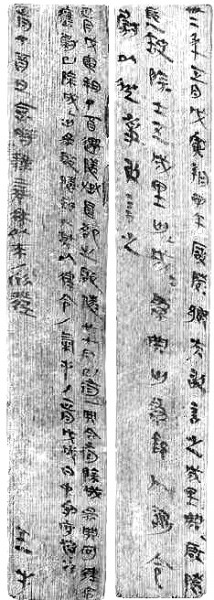 卅二年正月戊寅朔甲午啟陵鄉夫敢言之成里典啟陵
郵人缺除士五成里匄成成為典匄為郵人謁令
尉以從事敢言之
正月戊寅朔丁酉遷陵丞昌郤之啟陵廿七戶已有一典今有除成為典何律令
應尉已除成匄為啟陵郵人其以律令/氣手/正月戊戌日中守府快行
正月丁酉旦食時隸妾冉以來/欣發 壬手